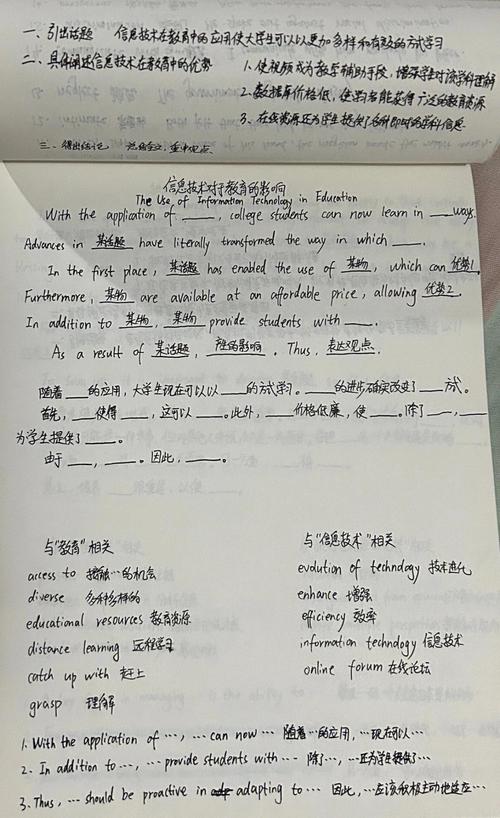 一、引出话题 信息技术在教育中的应用使大学生可以以更加多样和有效的方式学习
二、具体阐述信息技术在教育中的优势 1. 使视频成为教学辅助手段，增深学生对该学科理解
2. 数据库价格低，使学者能获得广泛的教育资源
3. 在线资源还为学生提供了各种即时的学科信息
三、得出结论 总结全文，重申观点
信息技术对于教育的影响
The Use of Information Technology in Education
With the application of ____, college students can now learn in ____ ways.
Advances in 某话题 have literally transformed the way in which ____.
In the first place, 某话题 has enabled the use of 某物, which can 优势1.
Furthermore, 某物 are available at an affordable price, allowing 优势2.
In addition to 某物, 某物 provide students with ____.
As a result of 某话题, 产生的影响. Thus, 表达观点.
随着____的应用，大学生现在可以以____的方式学习。____的进步确实改变了____方式。
首先，____使得____，这可以____。此外，____价格低廉，使____。除了____，____
为学生提供了____。
由于____，____。因此，____。
与"教育"相关 与"信息技术"相关
access to 接触…的机会 evolution of technology 技术进化
diverse 多种多样的 enhance 增强
educational resources 教育资源 efficiency 效率
distance learning 远程学习 information technology 信息技术
catch up with 赶上 online forum 在线论坛
grasp 理解
1. With the application of …, … can now … 随着…的应用，…现在可以…
2. In addition to …, … provide students with … 除了…，…还为学生提供了…
3. Thus, … should be proactive in adapting to … 因此，…应该积极主动地适应…